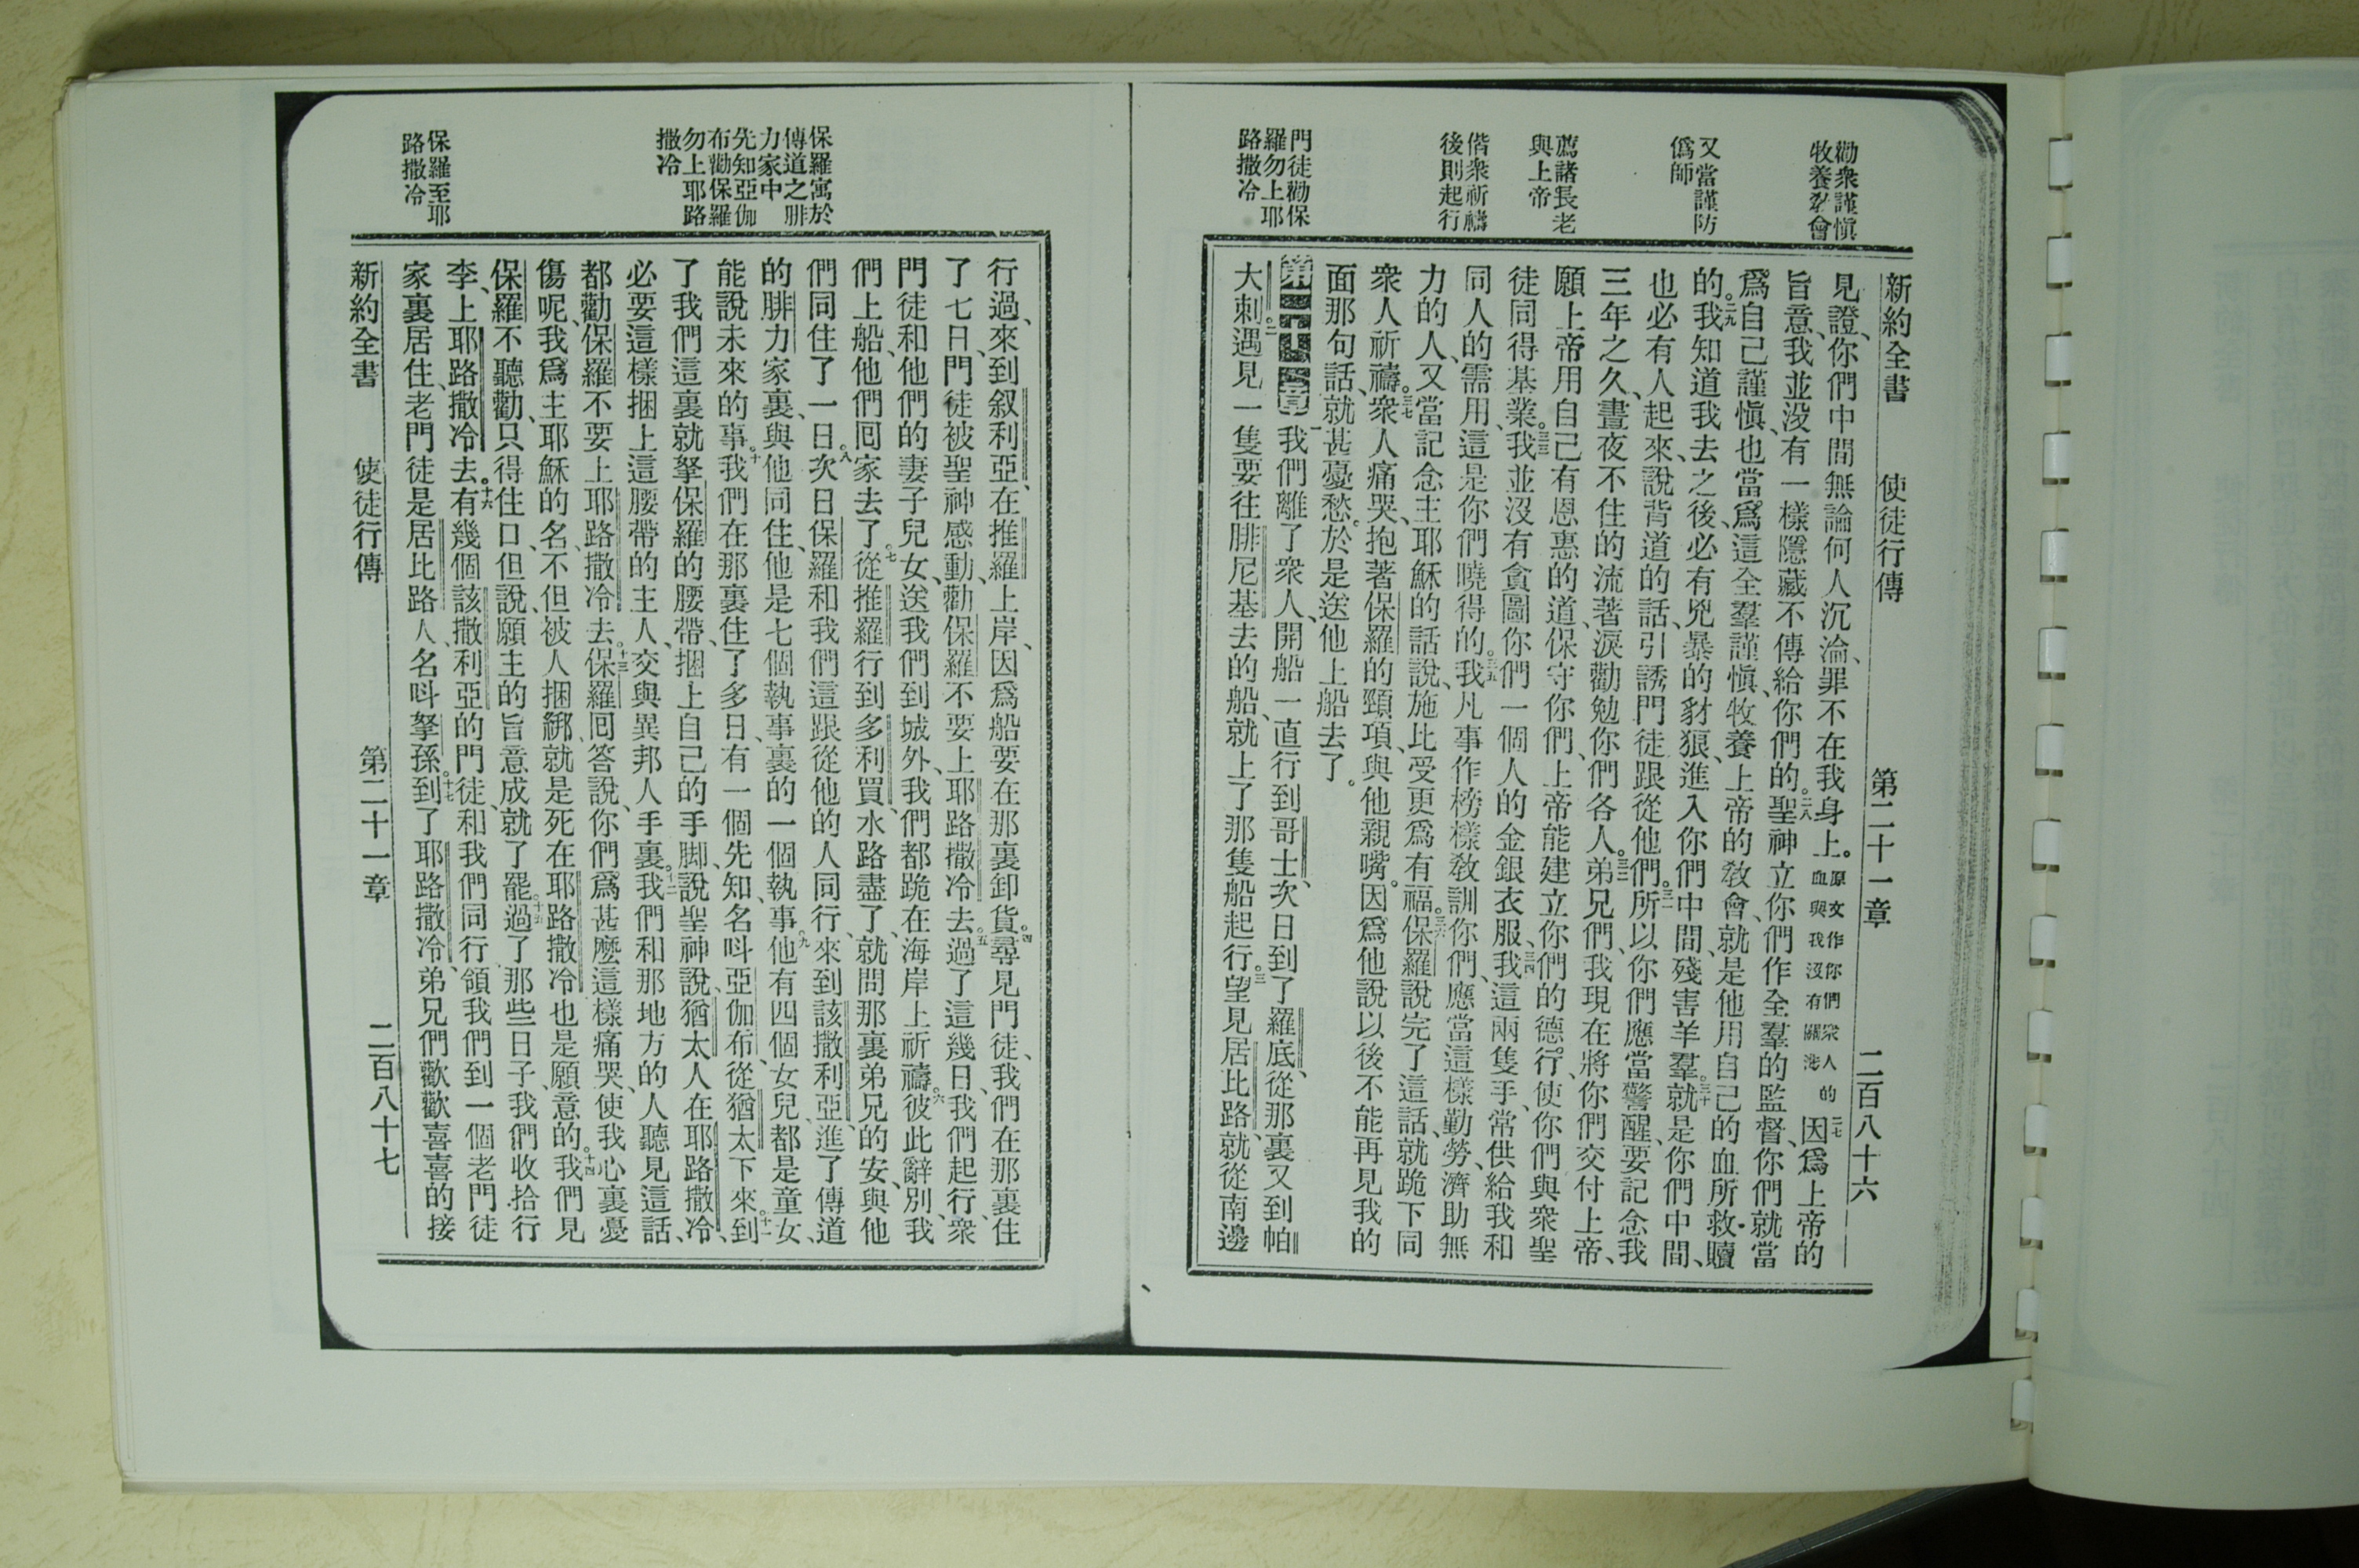 勸衆謹愼
牧養敎會
又當謹防
僞師
薦諸長老
與上帝
偕衆祈禱
後則起行
門徒勸保
羅勿上耶
路撒冷
新約全書 使徒行傳 第二十一章 二百八十六
見證、你們中間無論何人沉淪、罪不在我身上。原文作你們衆人的血與我沒有關涉二七因爲上帝的
旨意、我並沒有一樣隱藏不傳給你們的。二八聖神立你們作全羣的監督、你們就當
爲自己謹愼、也當爲這全羣謹愼、牧養上帝的敎會、就是他用自己的血所救贖
的。二九我知道我去之後、必有兇暴的豺狼、進入你們中間、殘害羊羣。三十就是你們中間、
也必有人起來、說背道的話、引誘門徒跟從他們。三一所以你們應當警醒、要記念我
三年之久、晝夜不住的流著淚、勸勉你們各人。三二弟兄們、我現在將你們交付上帝、
願上帝用自己有恩惠的道、保守你們、上帝能建立你們的德行、使你們與衆聖
徒同得基業。三三我並沒有貪圖你們一個人的金銀衣服、三四我這兩隻手、常供給我和
同人的需用、這是你們曉得的。三五我凡事作榜樣敎訓你們、應當這樣勤勞、濟助無
力的人、又當記念主耶穌的話說、施比受更爲有福。三六保羅說完了這話、就跪下同
衆人祈禱。三七衆人痛哭、抱著保羅的頸項、與他親嘴。因爲他說以後不能再見我的
面那句話、就甚憂愁。於是送他上船去了。
第二十一章 一我們離了衆人、開船一直行到哥士、次日到了羅底、從那裏又到帕
大刺。二遇見一隻要往腓尼基去的船、就上了那隻船起行。三望見居比路、就從南邊
保羅寓於
傳道之腓
力家中
先知亞伽
布勸保羅
勿上耶路
撒冷
保羅至耶
路撒冷
行過、來到叙利亞、在推羅上岸、因爲船要在那裏卸貨。四尋見門徒、我們在那裏住
了七日、門徒被聖神感動、勸保羅不要上耶路撒冷去。五過了這幾日、我們起行、衆
門徒和他們的妻子兒女、送我們到城外、我們都跪在海岸上祈禱。六彼此辭別、我
們上船、他們囘家去了。七從推羅行到多利買、水路盡了、就問那裏弟兄的安、與他
們同住了一日。八次日保羅和我們這跟從他的人同行、來到該撒利亞、進了傳道
的腓力家裏、與他同住、他是七個執事裏的一個執事。九他有四個女兒、都是童女、
能說未來的事。十我們在那裏住了多日、有一個先知、名呌亞伽布、從猶太下來。十一到
了我們這裏、就拏保羅的腰帶、捆上自己的手脚、說聖神說、猶太人在耶路撒冷、
必要這樣捆上這腰帶的主人、交與異邦人手裏。十二我們和那地方的人聽見這話、
都勸保羅不要上耶路撒冷去。十三保羅囘答說、你們爲甚麽這樣痛哭、使我心裏憂
傷呢、我爲主耶穌的名、不但被人捆綁、就是死在耶路撒冷也是願意的。十四我們見
保羅不聽勸、只得住口、但說、願主的旨意成就了罷。十五過了那些日子、我們收拾行
李、上耶路撒冷去。十六有幾個該撒利亞的門徒、和我們同行、領我們到一個老門徒
家裏居住、老門徒是居比路人、名呌拏孫。十七到了耶路撒冷、弟兄們歡歡喜喜的接
新約全書 使徒行傳 第二十一章 二百八十七